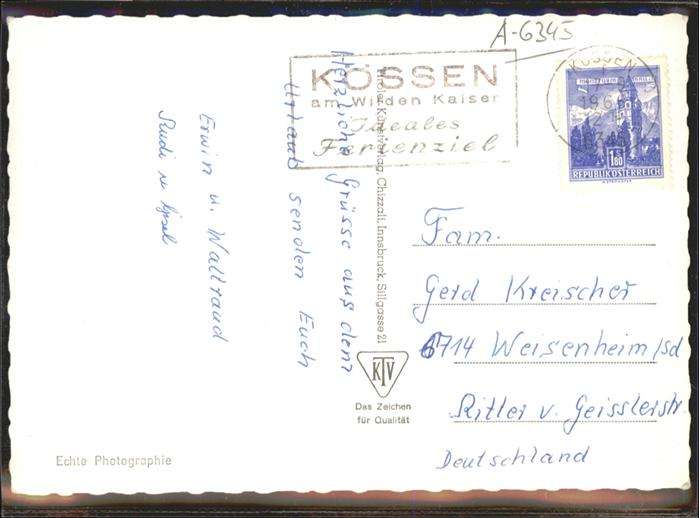 A-6345
KÖSSEN
am Wilden Kaiser
Ideales
Ferienziel
KÖSSEN
1.80
REPUBLIK ÖSTERREICH
Herzliche Grüsse aus dem
Urlaub senden Euch
Erwin u. Waltraud
Tiroler Kunstverlag Chizzali, Innsbruck, Sillgasse 21
Fam.
Gerd Kreischer
6714 Weisenheim/Sd
Ritter v. Geisslerstr.
Deutschland
KTV
Das Zeichen
für Qualität
Echte Photographie